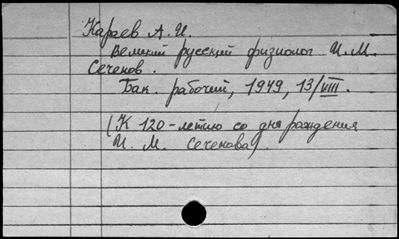 Караев А.И.
Великий русский физиолог И.М.
Сеченов.
Бак. рабочий, 1949, 13/VIII.
(К 120-летию со дня рождения
И. М. Сеченова).